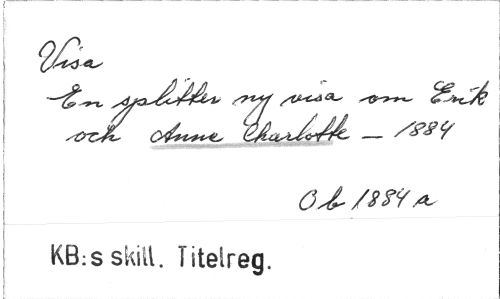 Visa
En splitter ny visa om Erik
och Anne Charlotte - 1884
Ob 1884 a
KB:s skill. Titelreg.